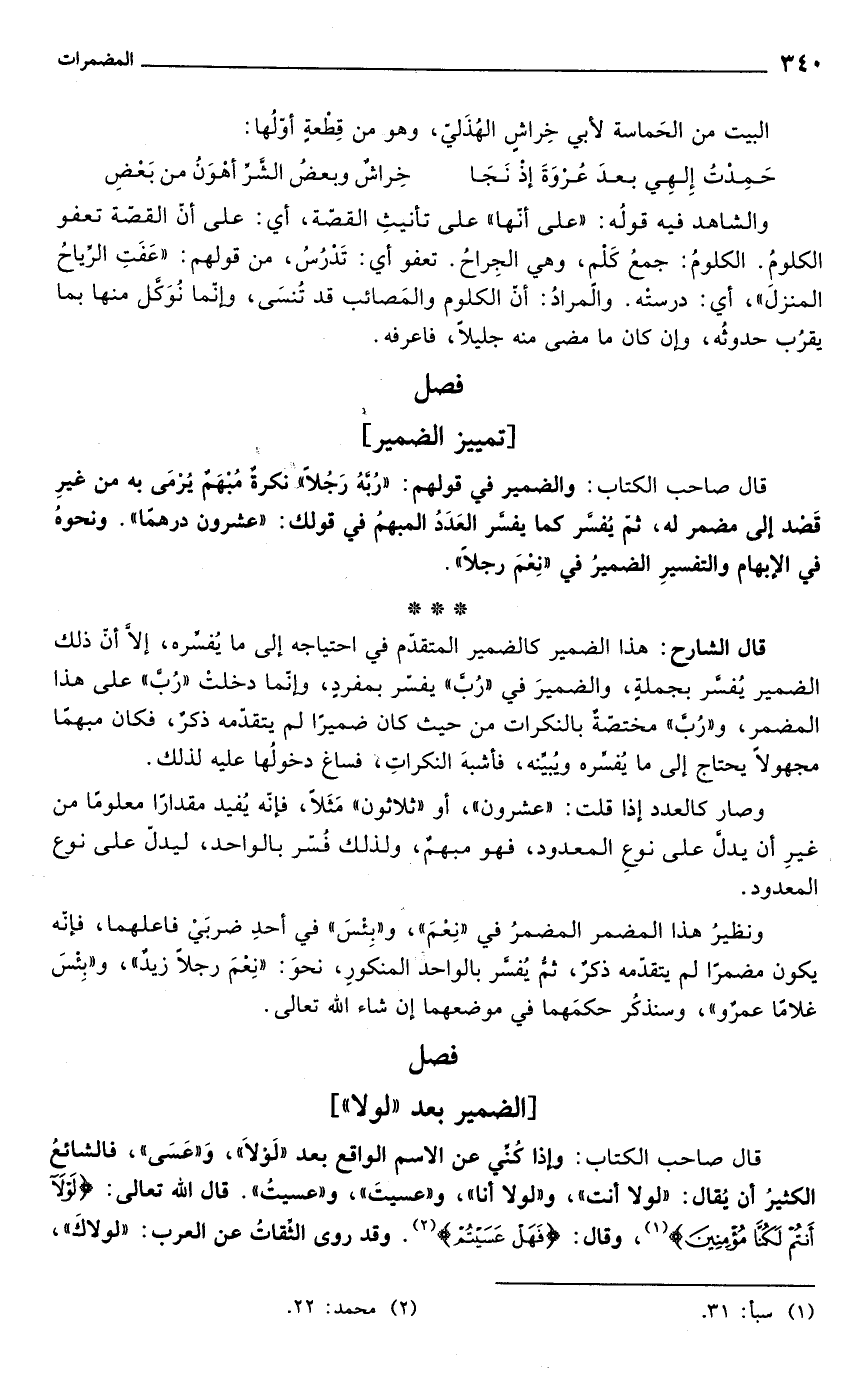 ٣٤٠ المضمرات
البيت من الحَماسة لأبي خِراشٍ الهُذَليّ، وهو من قِطْعةٍ أوّلُها:
حَمِدْتُ إلهِي بعدَ عُرْوَةَ إذْ نَجَا خِراشٌ وبعضُ الشَّرِّ أهْوَنُ من بَعْضِ
والشاهد فيه قولُه: «على أنّها» على تأنيثِ القصّة، أي: على أنّ القصّة تعفو
الكلومُ. الكلومُ: جمعُ كَلْم، وهي الجِراحُ. تعفو أي: تَدْرُسُ، من قولهم: «عَفَتِ الرِّياحُ
المنزلَ»، أي: درستْه. والمرادُ: أنّ الكلوم والمَصائب قد تُنسَى، وإنّما نُوَكَّل منها بما
يقرُب حدوثُه، وإن كان ما مضى منه جليلاً، فاعرفه.
فصل
[تمييز الضمير]
قال صاحب الكتاب: والضمير في قولهم: «رُبَّهُ رَجُلاً» نكرةٌ مُبْهَمٌ يُرْمَى به من غيرِ
قَصْد إلى مضمر له، ثمّ يُفسَّر كما يفسَّر العَدَدُ المبهمُ في قولك: «عشرون درهمًا». ونحوهُ
في الإبهام والتفسيرِ الضميرُ في «نِعْمَ رجلاً».
* * *
قال الشارح: هذا الضمير كالضمير المتقدّم في احتياجه إلى ما يُفسِّره، إلاَّ أنّ ذلك
الضمير يُفسَّر بجملةٍ، والضميرَ في «رُبَّ» يفسّر بمفردٍ، وإنّما دخلتْ «رُبَّ» على هذا
المضمر، و«رُبَّ» مختصّةٌ بالنكرات من حيث كان ضميرًا لم يتقدّمه ذكرٌ، فكان مبهمًا
مجهولاً يحتاج إلى ما يُفسِّره ويُبيِّنه، فأشبهَ النكراتِ، فساغ دخولُها عليه لذلك.
وصار كالعدد إذا قلت: «عشرون»، أو «ثلاثون» مَثَلاً، فإنّه يُفيد مقدارًا معلومًا من
غيرِ أن يدلَّ على نوعِ المعدود، فهو مبهمٌ، ولذلك فُسّر بالواحد، ليدلّ على نوع
المعدود.
ونظيرُ هذا المضمر المضمرُ في «نِعْمَ»، و«بِئْسَ» في أحدِ ضربَيْ فاعلهما، فإنّه
يكون مضمرًا لم يتقدّمه ذكرٌ، ثمُّ يُفسَّر بالواحد المنكورِ، نحوَ: «نِعْمَ رجلاً زيدٌ»، و«بِئْسَ
غلامًا عمرٌو»، وسنذكُر حكمَهما في موضعهما إن شاء الله تعالى.
فصل
[الضمير بعد «لولا»]
قال صاحب الكتاب: وإذا كُنّي عن الاسم الواقع بعد «لَوْلاَ»، وَ«عَسَى»، فالشائعُ
الكثيرُ أن يُقال: «لولا أنت»، و«لولا أنا»، و«عسيتَ»، و«عسيتُ». قال الله تعالى: ﴿لَوْلَآ
أَنتُمْ لَكُنَّا مُؤْمِنِينَ﴾(١)، وقال: ﴿فَهَلْ عَسَيْتُمْ﴾(٢). وقد روى الثِّقاتُ عن العرب: «لولاكَ»،
(١) سبأ: ٣١. (٢) محمد: ٢٢.